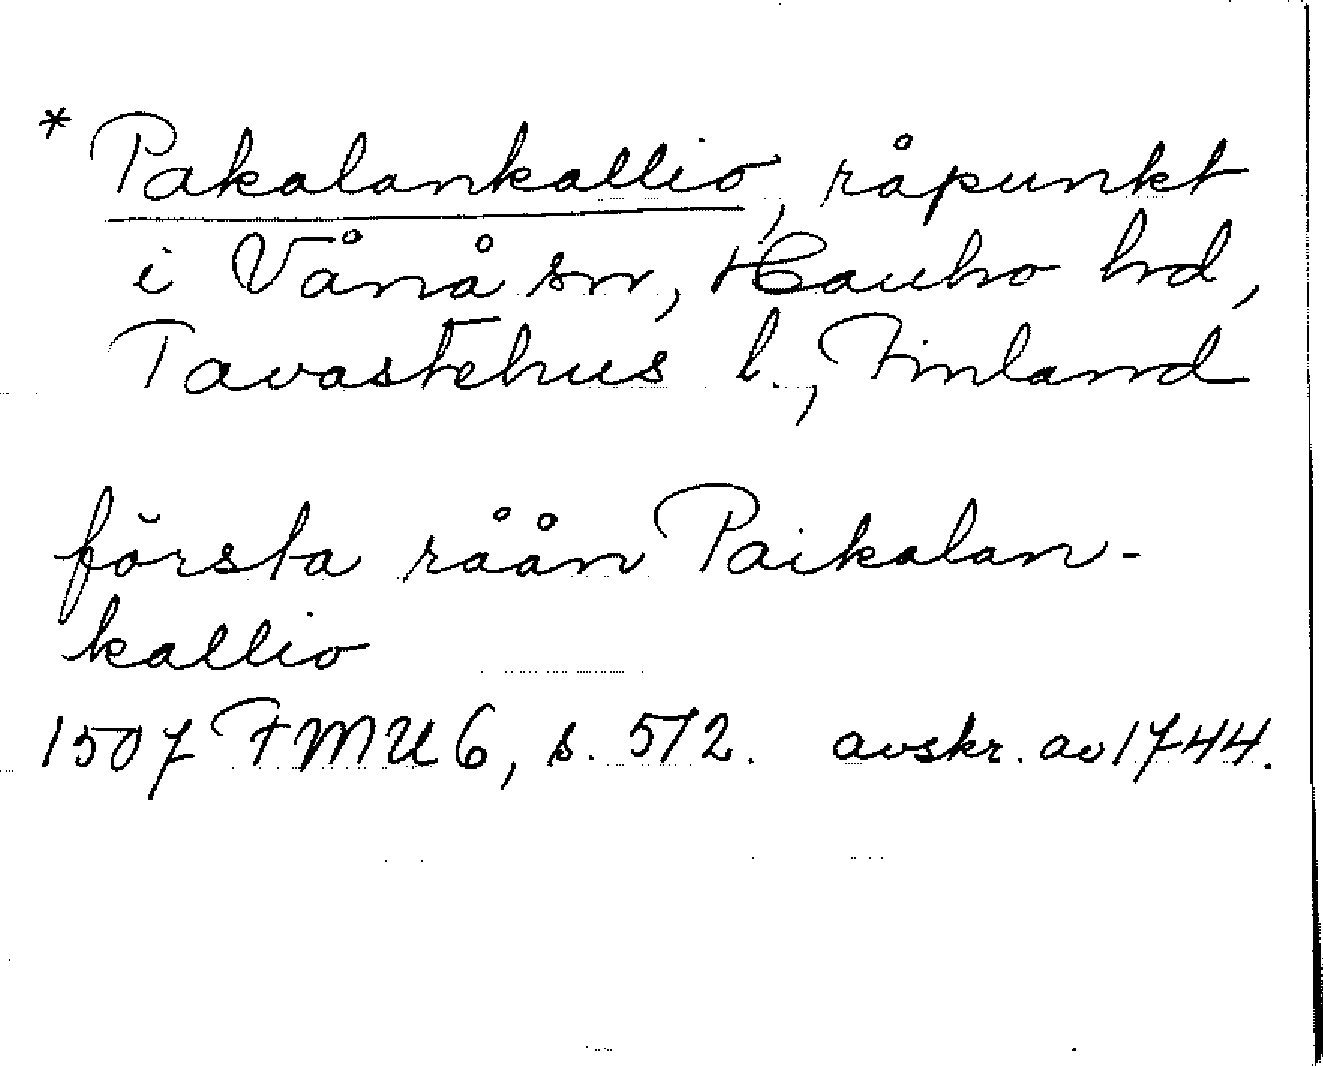 * Pakalankallio, råpunkt
i Vånå sn, Hauho hd,
Tavastehus l., Finland
första råån Paikalan-
kallio
1507 FMU 6, s. 572. avskr. av 1744.